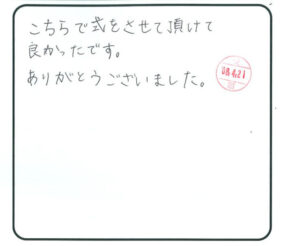 こちらで式をさせて頂けて
良かったです。
ありがとうございました。